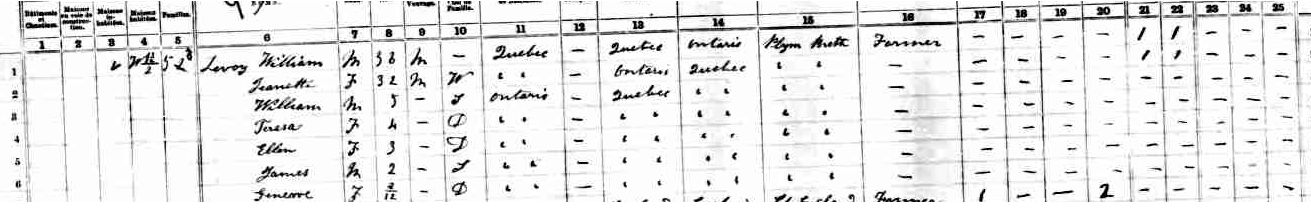 Bâtiments et Chantiers. Maisons en voie de construction. Maisons inhabitées. Maisons habitées. Familles.
1 2 3 4 5 6 7 8 9 10 11 12 13 14 15 16 17 18 19 20 21 22 23 24 25
Levoy William M 38 M — Quebec — Quebec Ontario Plym Breth Farmer — — — — 1 1 — — —
1 Jeanette F 32 M W " " — Ontario Quebec " " — — — — — 1 1 — — —
2 William M 5 — S Ontario — Quebec " " " " — — — — — — — — — —
3 Teresa F 4 — D " " — " " " " " " — — — — — — — — — —
4 Ellen F 3 — D " " — " " " " " " — — — — — — — — — —
5 James M 2 — S " " — " " " " " " — — — — — — — — — —
6 F — D " " — " " " " " " Farmer 1 — — 2 — — — — —